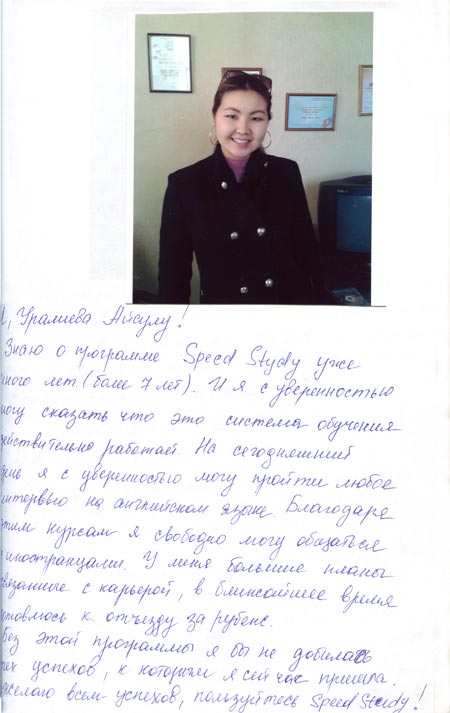 Я, Уралиева Айсулу!
Знаю о программе Speed Study уже
много лет (более 7 лет). И я с уверенностью
могу сказать что это система обучения
действительно работает. На сегодняшний
день я с уверенностью могу пройти любое
интервью на английском языке. Благодаря
этим курсам я свободно могу общаться
с иностранцами. У меня большие планы
связанные с карьерой, в ближайшее время
готовлюсь к отъезду за рубеж.
Без этой программы я бы не добилась
тех успехов, к которым я сейчас пришла.
Желаю всем успехов, пользуйтесь Speed Study!